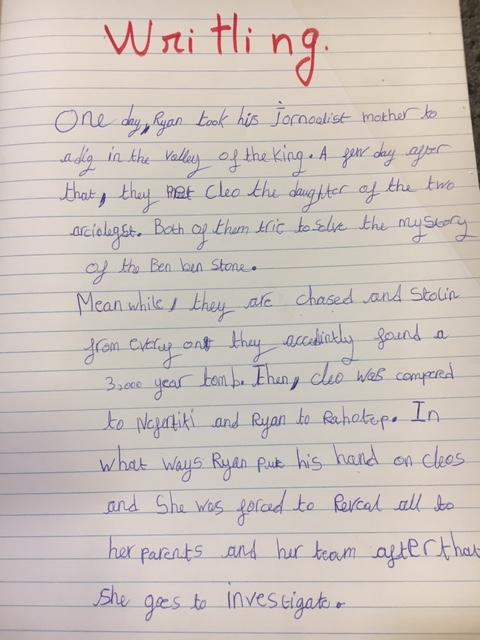 Writling.
One day, Ryan took his jornoalist mother to
a dig in the valley of the King. A few day after
that, they met Cleo the daughter of the two
arciolegst. Both of them trie to solve the mystory
of the Ben ben Stone.
Mean while, they are chased and Stolin
from every one they accedintly found a
3,000 year tomb. Then, cleo was compared
to Nefertiki and Ryan to Rahotep. In
what ways Ryan put his hand on cleos
and She was forced to Reveal all to
her parents and her team after that
she goes to investigate.